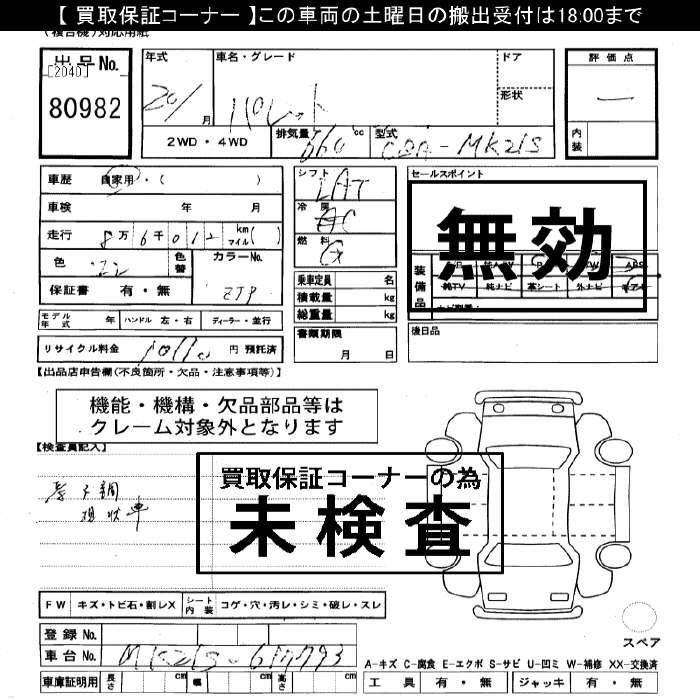 【 買取保証コーナー 】この車両の土曜日の搬出受付は18:00まで
(複合機)対応用紙
出品No.
[2040]
80982
年式
車名・グレード
ドア
形状
20/ 月
パレット
2WD・4WD
排気量 660 cc
型式 CBA-MK21S
評価点
内装
車歴 自家用・( )
車検 年 月
走行 8万6千012 km マイル( )
色
色替
カラーNo.
ZJP
保証書 有・無
シフト LAT
冷房 AC
燃料 G
乗車定員 名
積載量 kg
総重量 kg
書類期限
月 日
セールスポイント
無効
装備品
純TV 純ナビ 革シート 外ナビ
後日品
モデル年式 年 ハンドル 左・右 ディーラー・並行
リサイクル料金 円 預託済
【出品店申告欄(不良箇所・欠品・注意事項等)】
機能・機構・欠品部品等は
クレーム対象外となります
【検査員記入】
不調
現状車
買取保証コーナーの為
未検査
FW キズ・トビ石・割レX シート内装 コゲ・穴・汚レ・シミ・破レ・スレ
登録No.
車台No. MK21S-617793
車庫証明用 長さ cm 幅 cm 高さ cm
スペア
A-キズ C-腐食 E-エクボ S-サビ U-凹ミ W-補修 XX-交換済
工具 有・無 ジャッキ 有・無